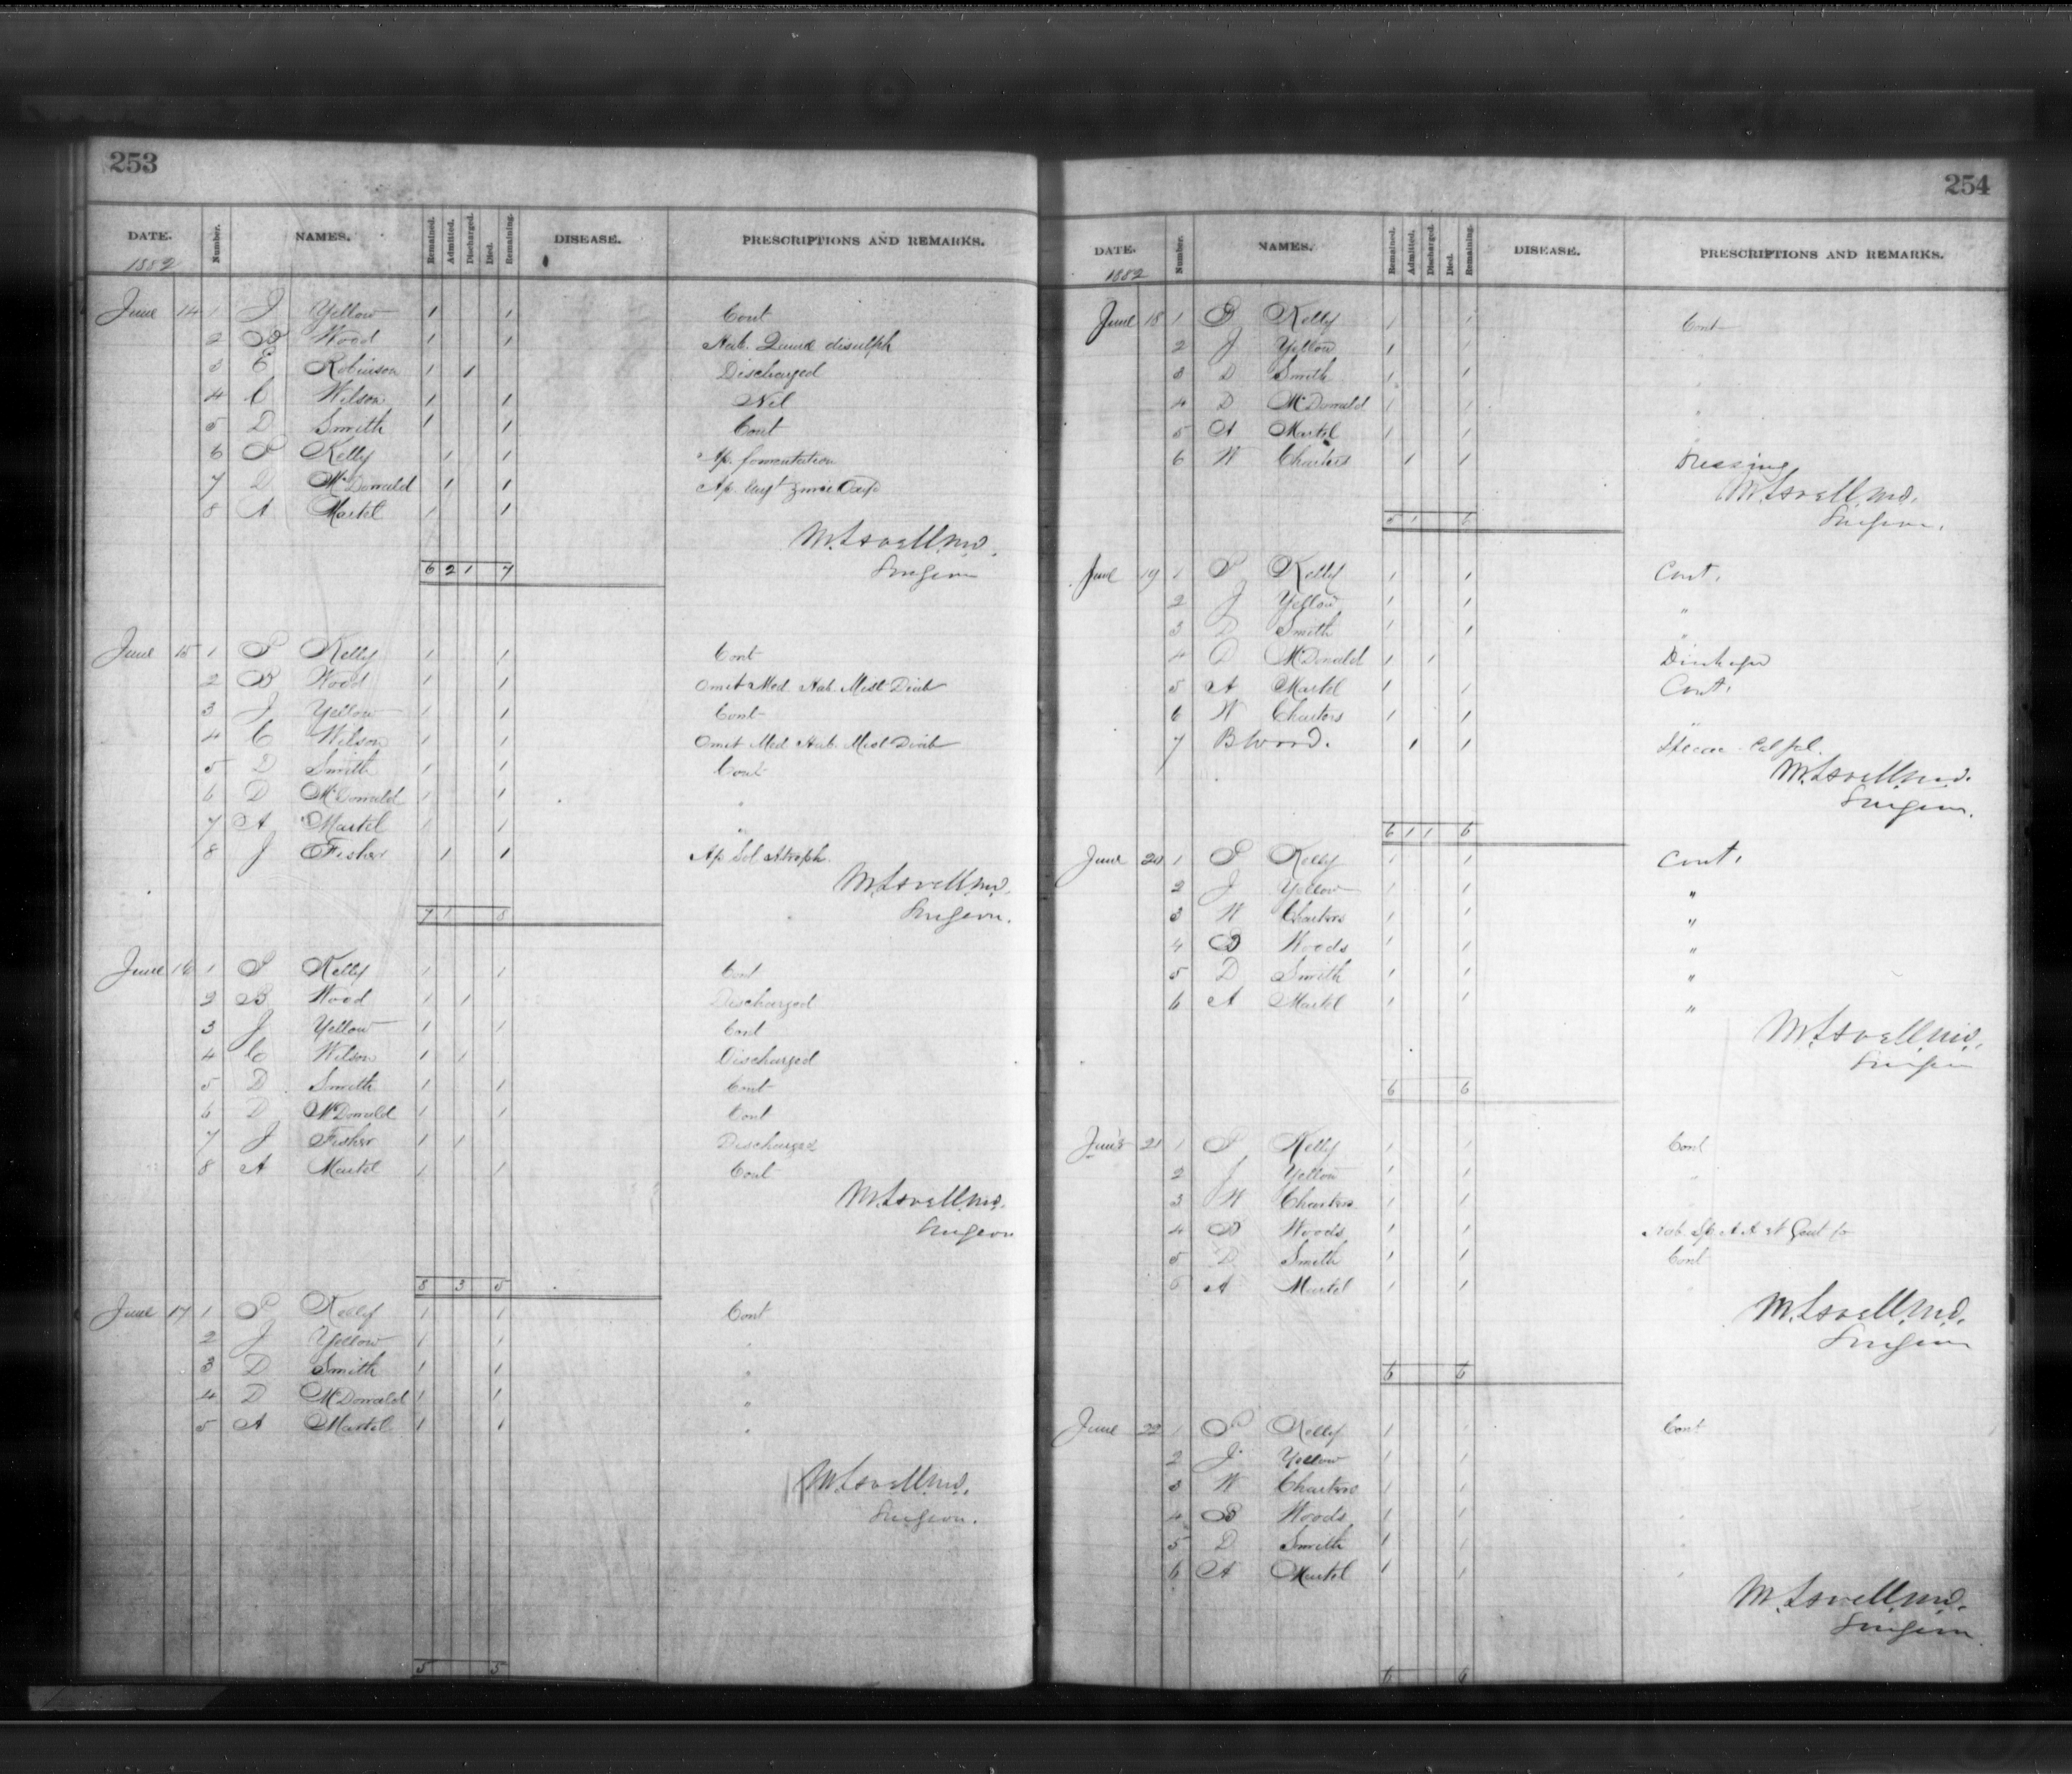 253
DATE. Number. NAMES. Remained. Admitted. Discharged. Died. Remaining. DISEASE. PRESCRIPTIONS AND REMARKS.
1882
June 14 1 J Yellow 1 1 Cont
2 B Wood 1 1 Hab. Quin disulph
3 E Robinson 1 1 Discharged
4 C Wilson 1 1 Nil
5 D Smith 1 1 Cont
6 P Kelly 1 1 Ap. fomentation
7 D McDonald 1 1 Ap. Ungt Zinci Oxyd
8 A Martel 1 1
M. Lavell M.D.
6 2 1 7 Surgeon
June 15 1 P Kelly 1 1 Cont
2 B Wood 1 1 Omit Med. Hab. Mist Diab
3 J Yellow 1 1 Cont
4 C Wilson 1 1 Omit Med Hab. Mist Diab
5 D Smith 1 1 Cont
6 D McDonald 1 1 "
7 A Martel 1 1 "
8 J Fisher 1 1 Ap Sol Atroph.
M. Lavell M.D.
7 1 8 Surgeon.
June 16 1 P Kelly 1 1 Cont
2 B Wood 1 1 Discharged
3 J Yellow 1 1 Cont
4 C Wilson 1 1 Discharged
5 D Smith 1 1 Cont
6 D McDonald 1 1 Cont
7 J Fisher 1 1 Discharged
8 A Martel 1 1 Cont
M. Lavell M.D.
Surgeon
8 3 5
June 17 1 P Kelly 1 1 Cont
2 J Yellow 1 1 "
3 D Smith 1 1 "
4 D McDonald 1 1 "
5 A Martel 1 1 "
M. Lavell M.D.
Surgeon.
5 5
254
DATE. Number. NAMES. Remained. Admitted. Discharged. Died. Remaining. DISEASE. PRESCRIPTIONS AND REMARKS.
1882
June 18 1 P Kelly 1 1 Cont
2 J Yellow 1 1 "
3 D Smith 1 1 "
4 D McDonald 1 1 "
5 A Martel 1 1 "
6 W Charters 1 1 Dressing
M. Lavell M.D.
5 1 6 Surgeon.
June 19 1 P Kelly 1 1 Cont.
2 J Yellow 1 1 "
3 D Smith 1 1 "
4 D McDonald 1 1 Discharged
5 A Martel 1 1 Cont.
6 W Charters 1 1 "
7 B Wood. 1 1
M. Lavell M.D.
Surgeon.
6 1 1 6
June 20 1 P Kelly 1 1 Cont.
2 J Yellow 1 1 "
3 W Charters 1 1 "
4 B Woods 1 1 "
5 D Smith 1 1 "
6 A Martel 1 1 "
M. Lavell M.D.
Surgeon
6 6
June 21 1 P Kelly 1 1 Cont
2 J Yellow 1 1 "
3 W Charters 1 1
4 B Woods 1 1
5 D Smith 1 1 Cont
6 A Martel 1 1 "
M. Lavell M.D.
Surgeon
6 6
June 22 1 P Kelly 1 1 Cont
2 J Yellow 1 1 "
3 W Charters 1 1 "
4 B Woods 1 1 "
5 D Smith 1 1 "
6 A Martel 1 1 "
M. Lavell M.D.
Surgeon.
6 6